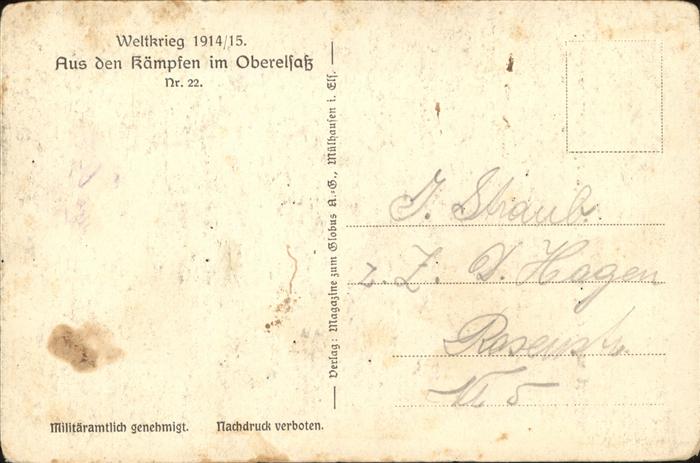 Weltkrieg 1914/15.
Aus den Kämpfen im Oberelsaß
Nr. 22.
Verlag: Magazine zum Globus A.-G., Mülhausen i. Els.
J. Straub
z. Z. D. Hagen
Rosenstr.
5
Militäramtlich genehmigt. Nachdruck verboten.